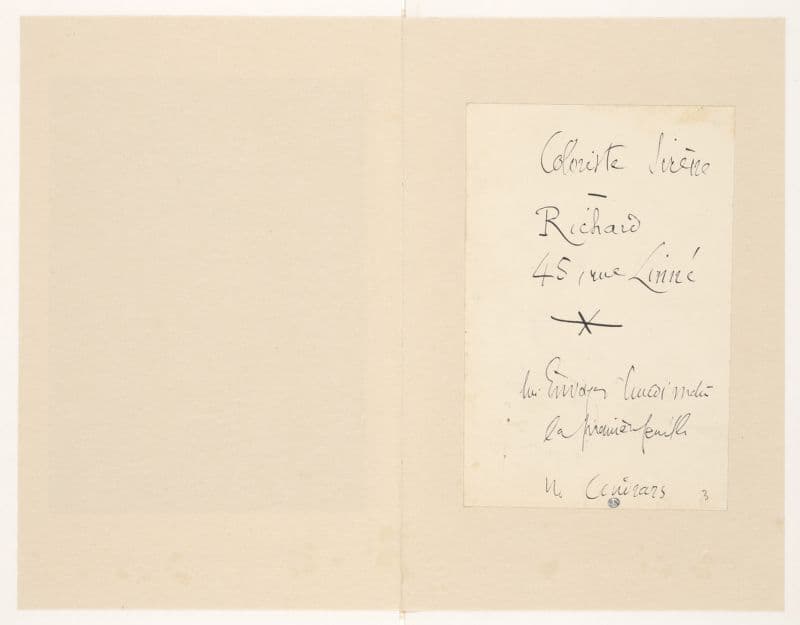 Coloriste Sirène
—
Richard
45, rue Linné
lui Envoyer lundi matin
la première feuille
M. Cendrars
3